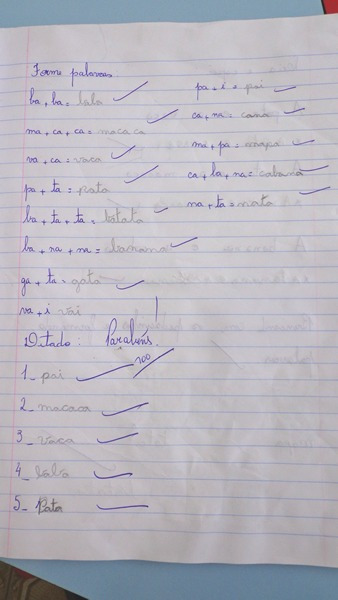 Forme palavras
ba + ba = baba
ma + ca + ca = macaca
va + ca = vaca
pa + ta = pata
ba + ta + ta = batata
ba + na + na = banana
ga + ta = gata
va + i vai
pa + i = pai
ca + na = cana
ma + pa = mapa
ca + ba + na = cabana
na + ta = nata
Ditado: Parabéns!
100
1_ pai
2_ macaca
3_ vaca
4_ baba
5_ Pata